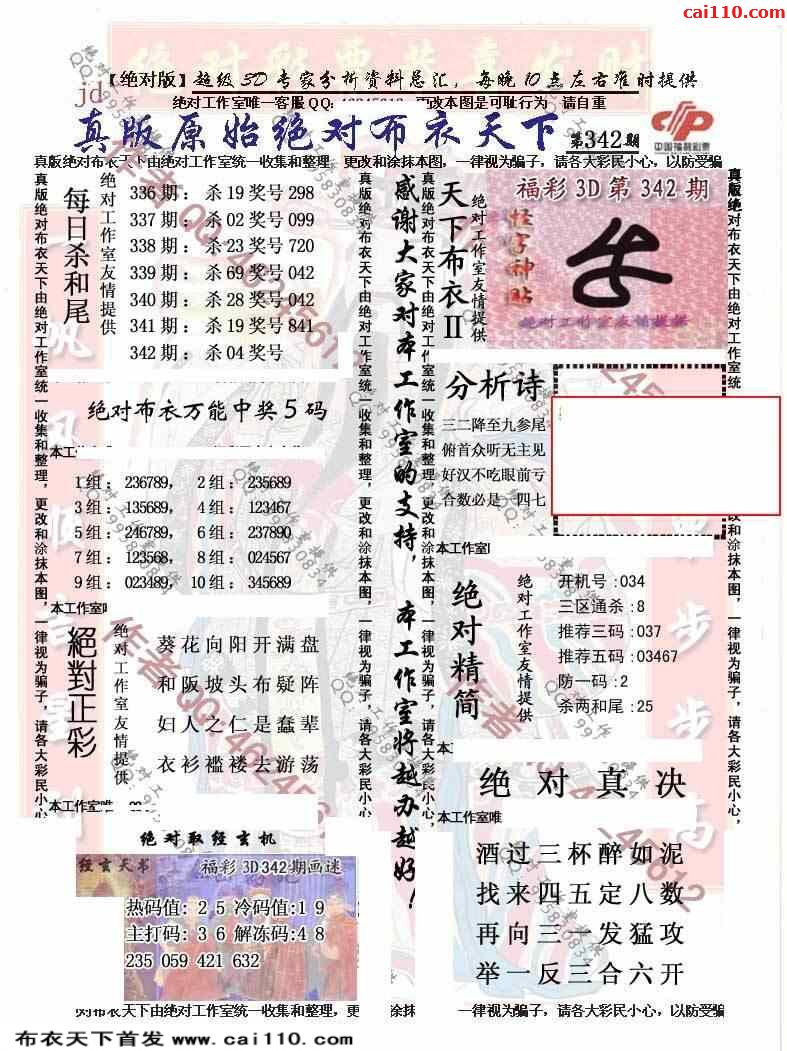 cai110.com
【绝对版】超级3D专家分析资料总汇，每晚10点左右准时提供
jd
绝对工作室唯一客服QQ: 更改本图是可耻行为 请自重
真版原始绝对布衣天下
第342期
中国福利彩票
真版绝对布衣天下由绝对工作室统一收集和整理，更改和涂抹本图，一律视为骗子，请各大彩民小心，以防受骗
每日杀和尾
绝对工作室友情提供
336期：杀19奖号298
337期：杀02奖号099
338期：杀23奖号720
339期：杀69奖号042
340期：杀28奖号042
341期：杀19奖号841
342期：杀04奖号
真版绝对布衣天下由绝对工作室统一收集和整理，更改和涂抹本图，一律视为骗子，请各大彩民小心，
感谢大家对本工作室的支持，本工作室将越办越好！
天下布衣II
绝对工作室友情提供
福彩3D第342期
怪字神贴
绝对工作室友情提供
绝对布衣万能中奖5码
1组：236789， 2组：235689
3组：135689， 4组：123467
5组：246789， 6组：237890
7组：123568， 8组：024567
9组：023489， 10组：345689
分析诗
三二降至九参尾
俯首众听无主见
好汉不吃眼前亏
合数必是一四七
本工作室唯
絕對正彩
绝对工作室友情提供
葵花向阳开满盘
和阪坡头布疑阵
妇人之仁是蠢辈
衣衫褴褛去游荡
绝对精简
绝对工作室友情提供
开机号:034
三区通杀:8
推荐三码:037
推荐五码:03467
防一码:2
杀两和尾:25
本工作室唯
绝对取经玄机
经玄天书
福彩3D342期画迷
热码值:25冷码值:19
主打码:36解冻码:48
235 059 421 632
绝对真决
本工作室唯
酒过三杯醉如泥
找来四五定八数
再向三一发猛攻
举一反三合六开
对布衣天下由绝对工作室统一收集和整理，更
涂抹
一律视为骗子，请各大彩民小心，以防受骗
布衣天下首发 www.cai110.com